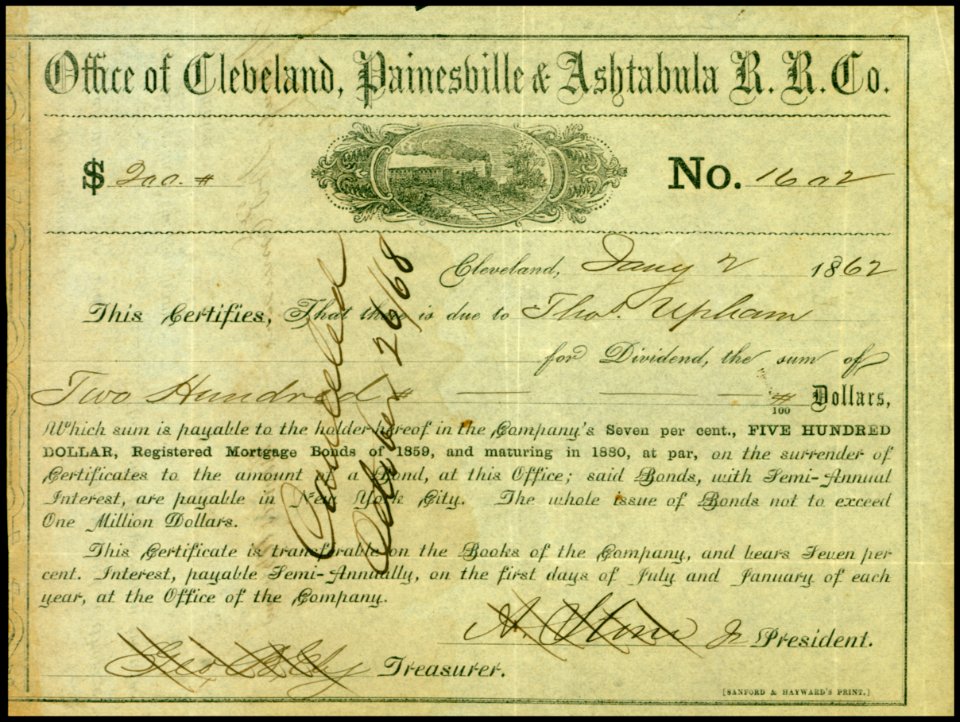 Office of Cleveland, Painesville & Ashtabula R. R. Co.
$ 200. #
No. 1602
Cleveland, Jany 2 1862
This Certifies, That there is due to Thos. Upham
for Dividend, the sum of
Two Hundred # — — — — #/100 Dollars,
Which sum is payable to the holder hereof in the Company's Seven per cent., FIVE HUNDRED
DOLLAR, Registered Mortgage Bonds of 1859, and maturing in 1880, at par, on the surrender of
Certificates to the amount of a Bond, at this Office; said Bonds, with Semi-Annual
Interest, are payable in New York City. The whole issue of Bonds not to exceed
One Million Dollars.
This Certificate is transferable on the Books of the Company, and bears Seven per
cent. Interest, payable Semi-Annually, on the first days of July and January of each
year, at the Office of the Company.
A. Stone Jr President.
Geo. B. Ely Treasurer.
[SANFORD & HAYWARD'S PRINT.]
Cancelled
October 20/68